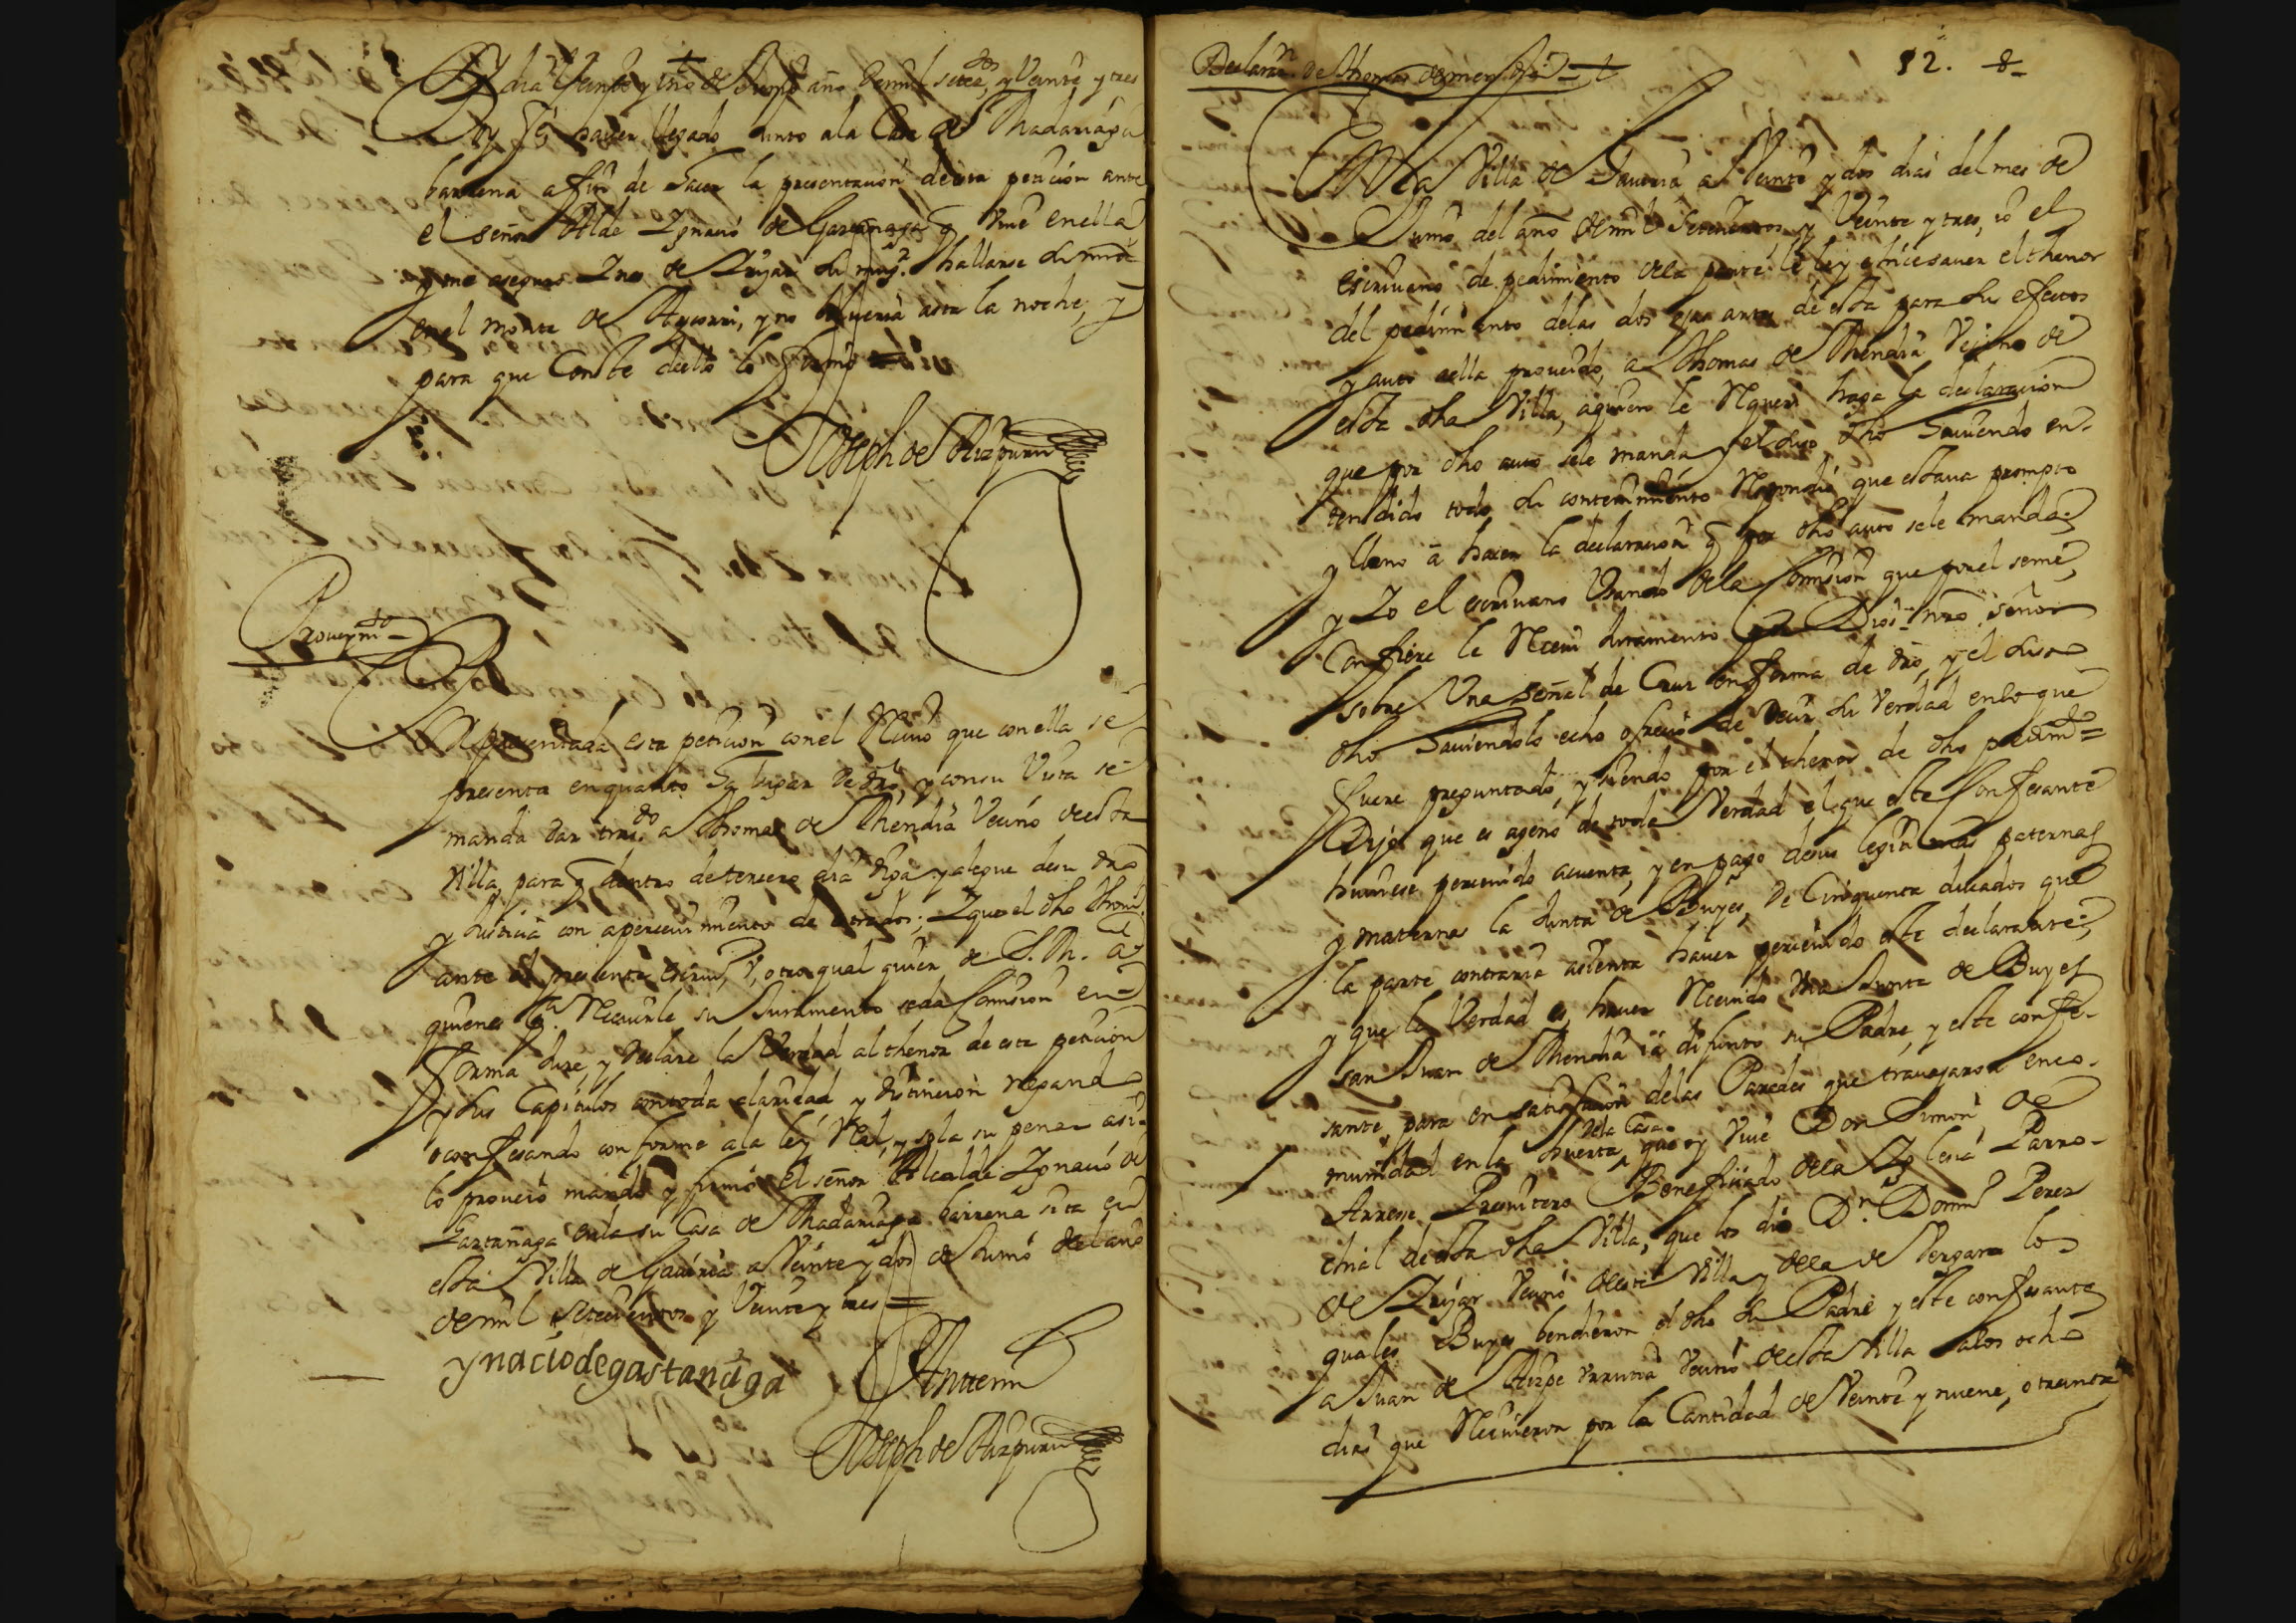 dia Veinte y uno de Junio año de mill setecᵒˢ, y Veinte y tres
doy fé hauer llegado junto ala Casa de Madariaga
barrena afin de hacer la presentacion de esta peticion ante
el señor Alcde Ignacio de Gastañaga q̃ viue en ella
y me aseguro Ines de su mugʳ. hallarse su mdo
en el monte de Aycorri, y no bolueria asta la noche, y
para que Conste dello lo firmo =
Joseph de Aizpuru
Proueymᵗᵒ
Presentada esta peticion con el Reciuo que con ella se
presenta en quanto ha lugar de dr̃o, y con su Vista se
manda dar trasᵈᵒ a Thomas de Mendia Vecino de esta
Villa, para q̃ dentro de tercero dia diga y alegue de su dr̃o
y Justicia con aperceuimiento de estrados; Y que el dho Thom.
ante el presente escriuᵒ, V, otro qual quier de S. M. a
quienes pᵃ. Reciuirle su Juramento se da Comision en
forma Jure, y declare la Verdad al thenor de esta peticion
y sus Capitulos con toda claridad y distincion negando
o confesando conforme ala ley Rˡ, y so la su pena asi
lo proueyo mando y firmo el señor Alcalde Ignacio de
Gastañaga en la su Casa de Madariaga barrena sita en
esta Villa de Gauiria a Veinte y dos de Junio del año
de mil setecientos y Veinte y tres =
ynacio de gastanaga
Ante mi
Joseph de Aizpuru
Declarᵒⁿ de Thomas de mendia
12.
En la Villa de Gauiria a Veinte y dos dias del mes de
Junio del año de mil Setecientos y Veinte y tres, yo el
escriuano de pedimiento dela parte le ley e hice sauer el thenor
del pedimiento delas dos ojas antes de esta para sus efectos
y auto aella proueido, a Thomas de Mendia Vezino de
esta dha Villa, aquien le Requeri haga la declaracion
que por dho auto sele manda y el suso dho hauiendo en-
tendido todo su contenimiento Respondió que estaua prompto
y llano à hacer la declaracion q̃ por dho auto sele manda;
y Yo el escriuano Usando dela Comision que por el se me
Confiere le Reciui Juramento por Dios nr̃o señor
sobre Una señal de Cruz en forma de dr̃o, y el suso
dho hauiendolo echo ofrecio de decir la Verdad en lo que
fuere preguntado, y siendo por el thenor de dho pedimᵗᵒ =
Dijo que es ageno de toda Verdad el que este Confesante
huuiese perceuido acuenta, y en pago de sus legitimas paternas
y maternas la Junta de Buyes, de Cinquenta ducados que
la parte contraria asienta hauer perceuido este declarante;
y que la Verdad es hauer Reciuido Una Junta de Buyes
son Juan de Mendia ia difunto su Padre, y este confe-
sante, para en satisfacion delas Paredes que trauajaron en co-
munidad en la huerta dela Casa que oy viue Don Simon de
Arrese Presuitero Beneficiado dela Iglesia Parro-
chial de esta dha Villa, que los dió Dⁿ. Domᵒ Perez
de Vecino de esta Villa y dela de Vergara los
quales Buyes bendieron el dho su Padre y este confesante
a Juan de Aizpe vrrutia Vecino de esta Villa alos ocho
dias que Reciuieron por la Cantidad de Veinte y nueue, o treinta